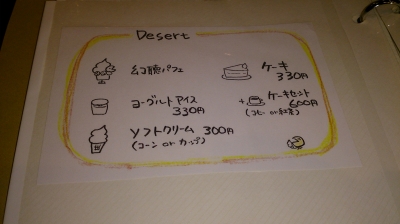 Desert
幻聴パフェ
ケーキ
330円
ヨーグルトアイス
330円
+ ケーキセット
600円
(コーヒー or 紅茶)
ソフトクリーム 300円
(コーン or カップ)